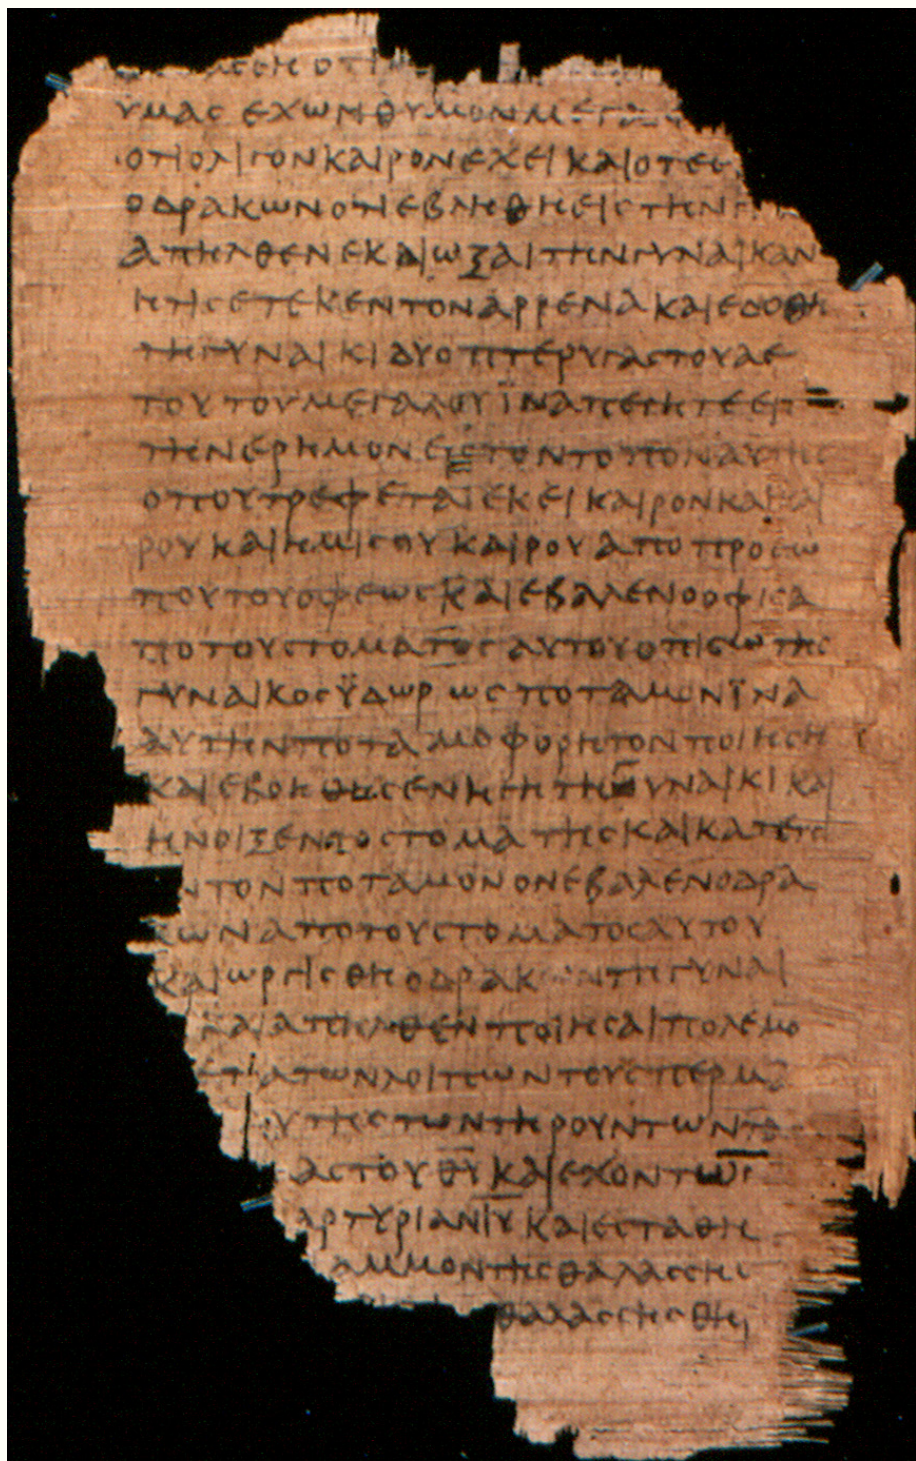 ΛΑΣΣΗ ΟΤΙ
ΥΜΑΣ ΕΧΩΝ ΘΥΜΟΝ ΜΕΓΑ
ΟΤΙ ΟΛΙΓΟΝ ΚΑΙΡΟΝ ΕΧΕΙ ΚΑΙ ΟΤΕ
Ο ΔΡΑΚΩΝ ΟΤΙ ΕΒΛΗΘΗ ΕΙΣ ΤΗΝ
ΑΠΗΛΘΕΝ ΕΚΔΙΩΞΑΙ ΤΗΝ ΓΥΝΑΙΚΑΝ
ΗΤΙΣ ΕΤΕΚΕΝ ΤΟΝ ΑΡΡΕΝΑ ΚΑΙ ΕΔΟΘΗ
ΤΗ ΓΥΝΑΙΚΙ ΔΥΟ ΠΤΕΡΥΓΑΣ ΤΟΥ ΑΕ
ΤΟΥ ΤΟΥ ΜΕΓΑΛΟΥ ΪΝΑ ΠΕΤΗΤΕ ΕΙΣ
ΤΗΝ ΕΡΗΜΟΝ ΕΙΣ ΤΟΝ ΤΟΠΟΝ ΑΥΤΗΣ
ΟΠΟΥ ΤΡΕΦΕΤΑΙ ΕΚΕΙ ΚΑΙΡΟΝ ΚΑΙ ΚΑΙ
ΡΟΥ ΚΑΙ ΗΜΙΣΟΥ ΚΑΙΡΟΥ ΑΠΟ ΠΡΟΣΩ
ΠΟΥ ΤΟΥ ΟΦΕΩΣ ΚΑΙ ΕΒΑΛΕΝ Ο ΟΦΙΣ Α
ΠΟ ΤΟΥ ΣΤΟΜΑΤΟΣ ΑΥΤΟΥ ΟΠΙΣΩ ΤΗΣ
ΓΥΝΑΙΚΟΣ ΫΔΩΡ ΩΣ ΠΟΤΑΜΟΝ ΪΝΑ
ΑΥΤΗΝ ΠΟΤΑΜΟΦΟΡΗΤΟΝ ΠΟΙΗΣΗ
ΚΑΙ ΕΒΟΗΘΗΣΕΝ Η ΓΗ ΤΗ ΓΥΝΑΙΚΙ ΚΑΙ
ΗΝΟΙΞΕΝ ΤΟ ΣΤΟΜΑ ΤΗΣ ΚΑΙ ΚΑΤΕΠΙΕ
Ν ΤΟΝ ΠΟΤΑΜΟΝ ΟΝ ΕΒΑΛΕΝ Ο ΔΡΑ
ΚΩΝ ΑΠΟ ΤΟΥ ΣΤΟΜΑΤΟΣ ΑΥΤΟΥ
ΚΑΙ ΩΡΓΙΣΘΗ Ο ΔΡΑΚΩΝ ΤΗ ΓΥΝΑΙ
ΚΑΙ ΑΠΗΛΘΕΝ ΠΟΙΗΣΑΙ ΠΟΛΕΜΟ
ΕΤΑ ΤΩΝ ΛΟΙΠΩΝ ΤΟΥ ΣΠΕΡΜΑ
Υ ΤΗΣ ΤΩΝ ΤΗΡΟΥΝΤΩΝ ΤΑ
ΑΣ ΤΟΥ Θ̅Υ̅ ΚΑΙ ΕΧΟΝΤΩΝ
ΑΡΤΥΡΙΑΝ Ι̅Υ̅ ΚΑΙ ΕΣΤΑΘΗ
ΑΜΜΟΝ ΤΗΣ ΘΑΛΑΣΣΗΣ
ΘΑΛΑΣΣΗΣ ΘΗ